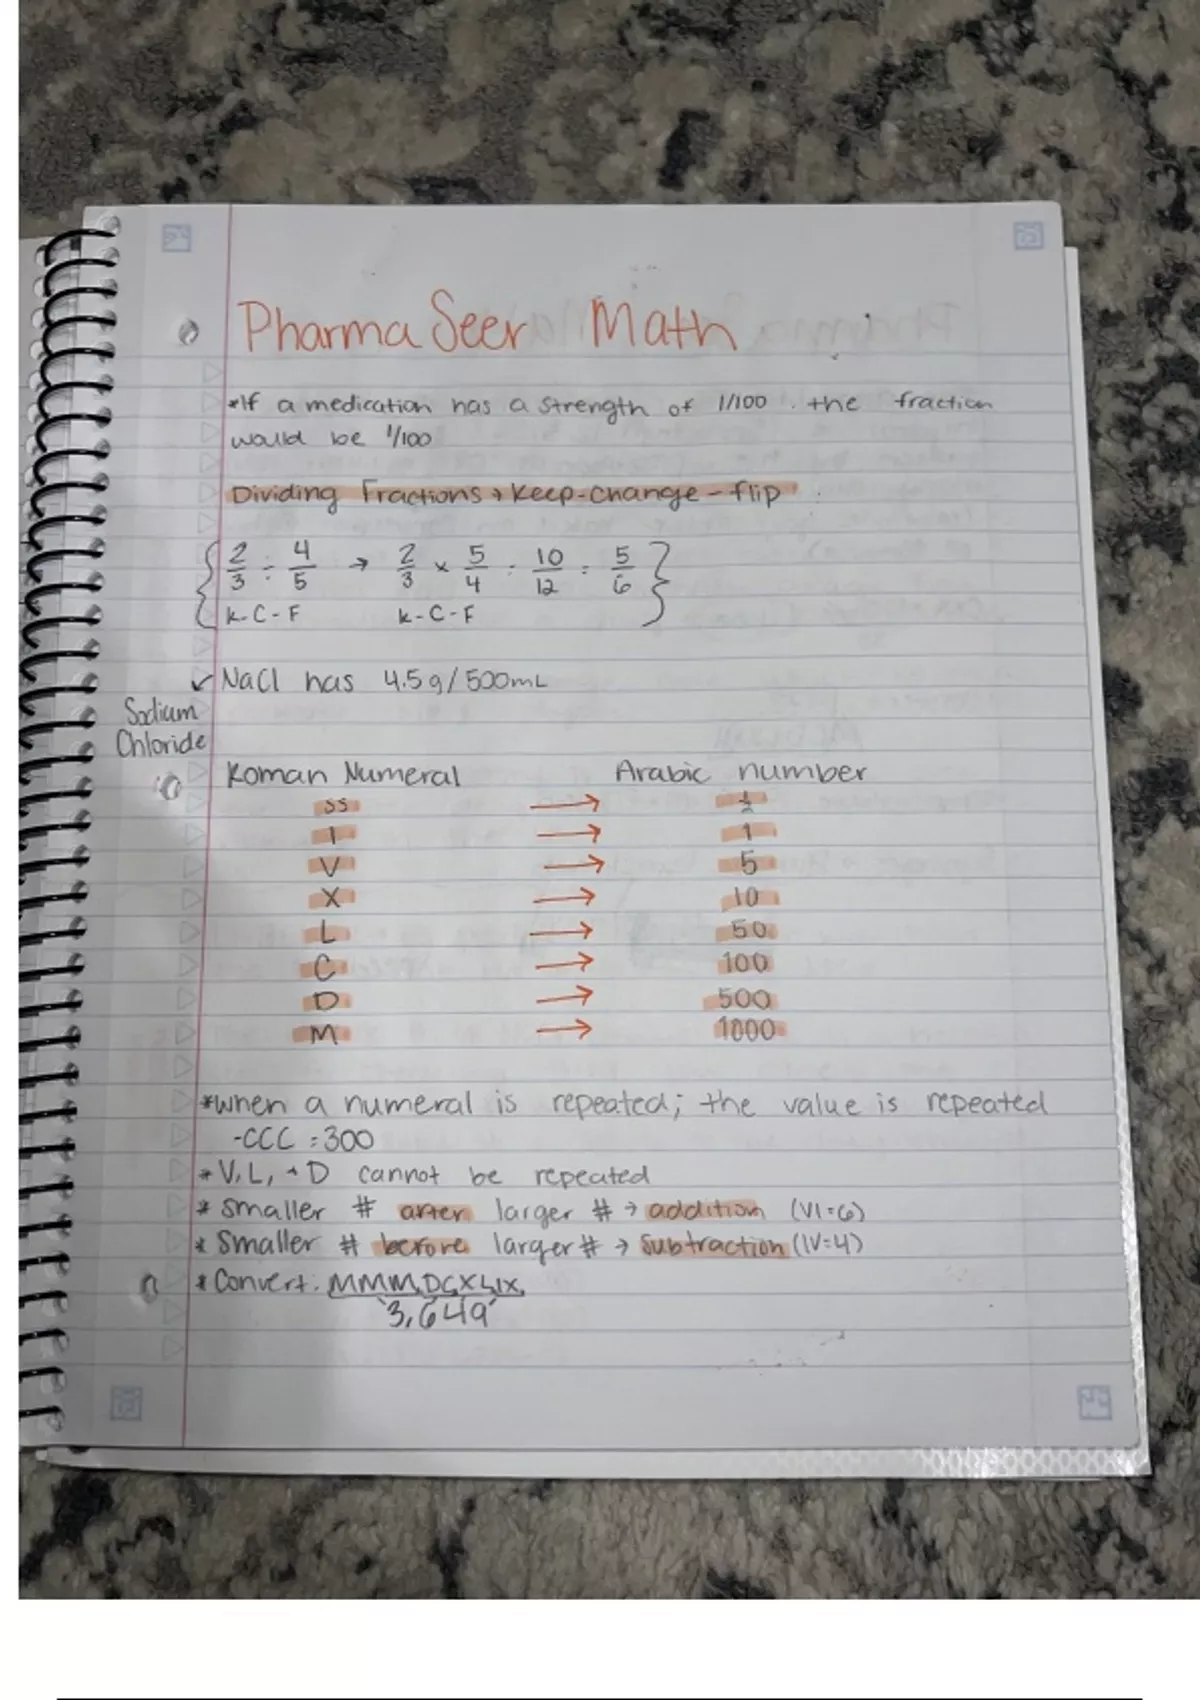 Pharma Seer Math
*If a medication has a strength of 1/100, the fraction
would be 1/100
Dividing Fractions → Keep-change-flip
2/3 ÷ 4/5 → 2/3 × 5/4 = 10/12 = 5/6
K-C-F K-C-F
✓ NaCl has 4.5g/500mL
Sodium
Chloride
Roman Numeral Arabic number
ss → 1/2
I → 1
V → 5
X → 10
L → 50
C → 100
D → 500
M → 1000
*when a numeral is repeated; the value is repeated
-CCC = 300
*V, L, + D cannot be repeated
*smaller # after larger # → addition (VI=6)
*Smaller # before larger # → subtraction (IV=4)
*Convert: MMMDCXLIX
3,649